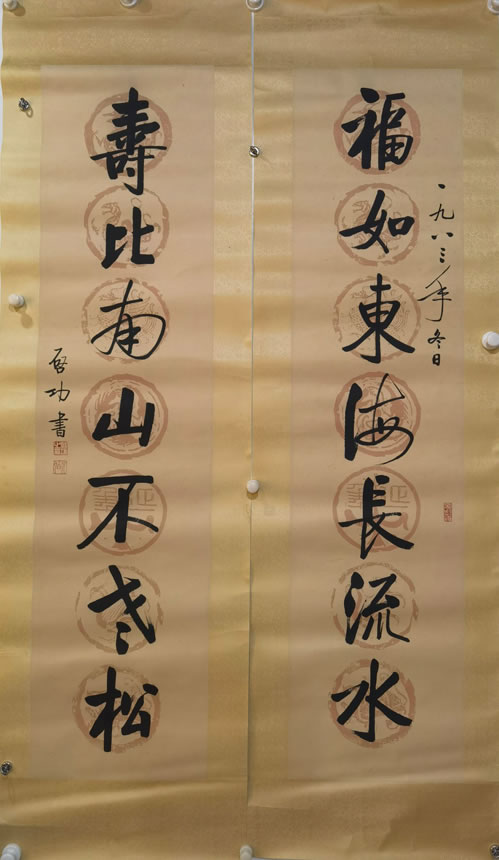 福如東海長流水
一九八三年冬日
壽比南山不老松
啓功書